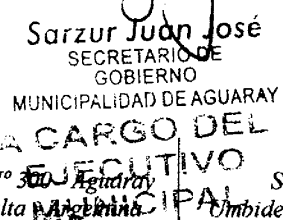 Sarzur Juan José
SECRETARIO DE
GOBIERNO
MUNICIPALIDAD DE AGUARAY
A CARGO DEL
EJECUTIVO
ro 300 Aguaray S
MUNICIPAL
lta Argentina Umbide